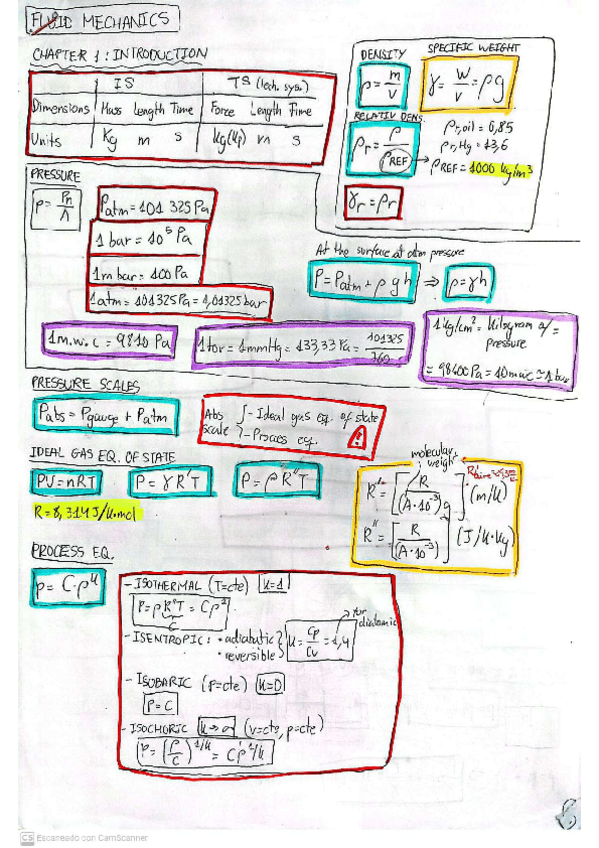 FLUID MECHANICS
CHAPTER 1: INTRODUCTION
IS TS (tech. sys.)
Dimensions Mass Length Time Force Length Time
Units Kg m s Kg(Kp) m s
DENSITY
ρ = m/v
SPECIFIC WEIGHT
γ = W/v = ρg
RELATIV DENS.
ρr = ρ/ρREF
ρr,oil = 0,85
ρr,Hg = 13,6
ρREF = 1000 kg/m³
γr = ρr
PRESSURE
P = Pn/A
Patm = 101 325 Pa
1 bar = 10⁵ Pa
1 mbar = 100 Pa
1 atm = 101325 Pa = 1,01325 bar
At the surface at atm pressure
P = Patm + ρ g h ⇒ p = γh
1 m.w.c = 9810 Pa
1 tor = 1 mmHg = 133,33 Pa = 101325/760
1 kg/cm² = kilogram of =
pressure
= 98100 Pa = 10 mwc ≈ 1 bar
PRESSURE SCALES
Pabs = Pgauge + Patm
Abs scale
- Ideal gas eq. of state
- Process eq.
!
IDEAL GAS EQ. OF STATE
PV = nRT
P = γR'T
P = ρR''T
R = 8,314 J/K·mol
molecular weight
R' = [R/(A·10⁻³)g] (m/K)
R'' = [R/(A·10⁻³)] (J/K·kg)
PROCESS EQ.
P = C·ρᵏ
- ISOTHERMAL (T=cte) K=1
P = ρR''T = Cρ¹
C
- ISENTROPIC: • adiabatic
• reversible
K = Cp/Cv = 1,4
for diatomic
- ISOBARIC (P=cte) K=0
P = C
- ISOCHORIC K→∞ (v=cte, ρ=cte)
ρ = (P/C)^1/K = C'P^1/K
CS Escaneado con CamScanner